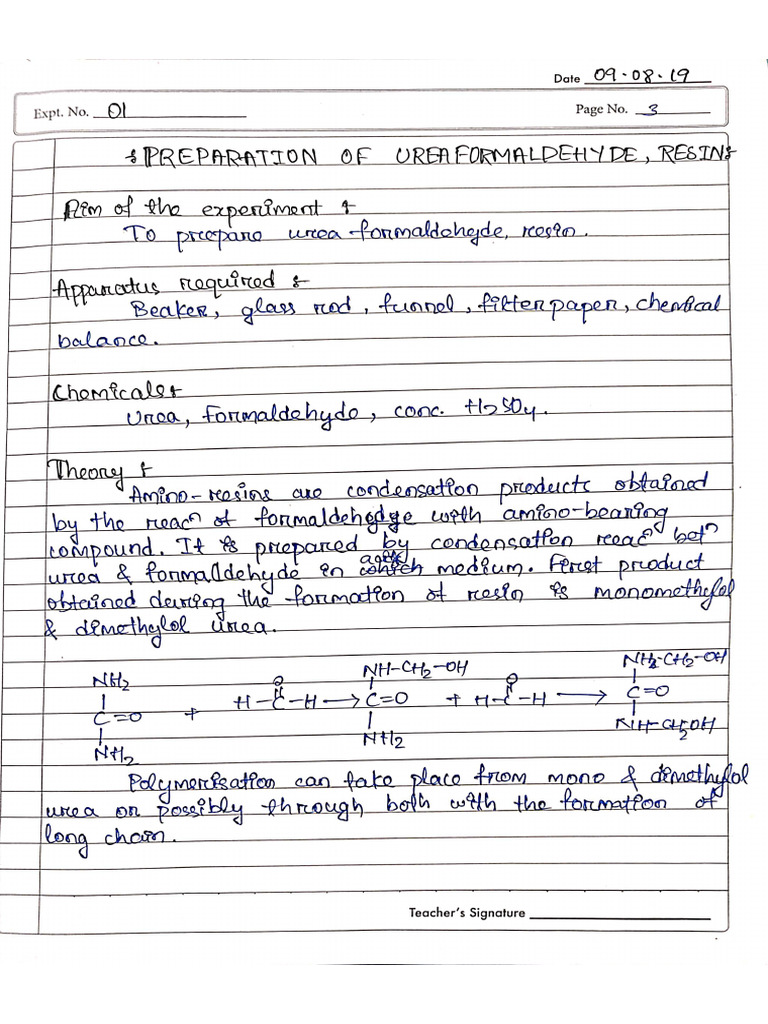 Date 09.08.19
Expt. No. 01 Page No. 3
:PREPARATION OF UREAFORMALDEHYDE, RESIN:
Aim of the experiment :
To prepare urea-formaldehyde, resin.
Apparatus required :
Beaker, glass rod, funnel, filter paper, chemical
balance.
Chemicals:
Urea, formaldehyde, conc. H2SO4.
Theory :
Amino-resins are condensation products obtained
by the reacn of formaldehedge with amino-bearing
compound. It is prepared by condensation reacn betn
urea & formalldehyde in acidic medium. First product
obtained during the formation of resin is monomethylol
& dimethylol urea.
NH2 NH-CH2-OH NH2-CH2-OH
O O
C=O + H-C-H → C=O + H-C-H → C=O
NH2 NH2 NH-CH2OH
Polymerisation can take place from mono & dimethylol
urea or possibly through both with the formation of
long chain.
Teacher's Signature